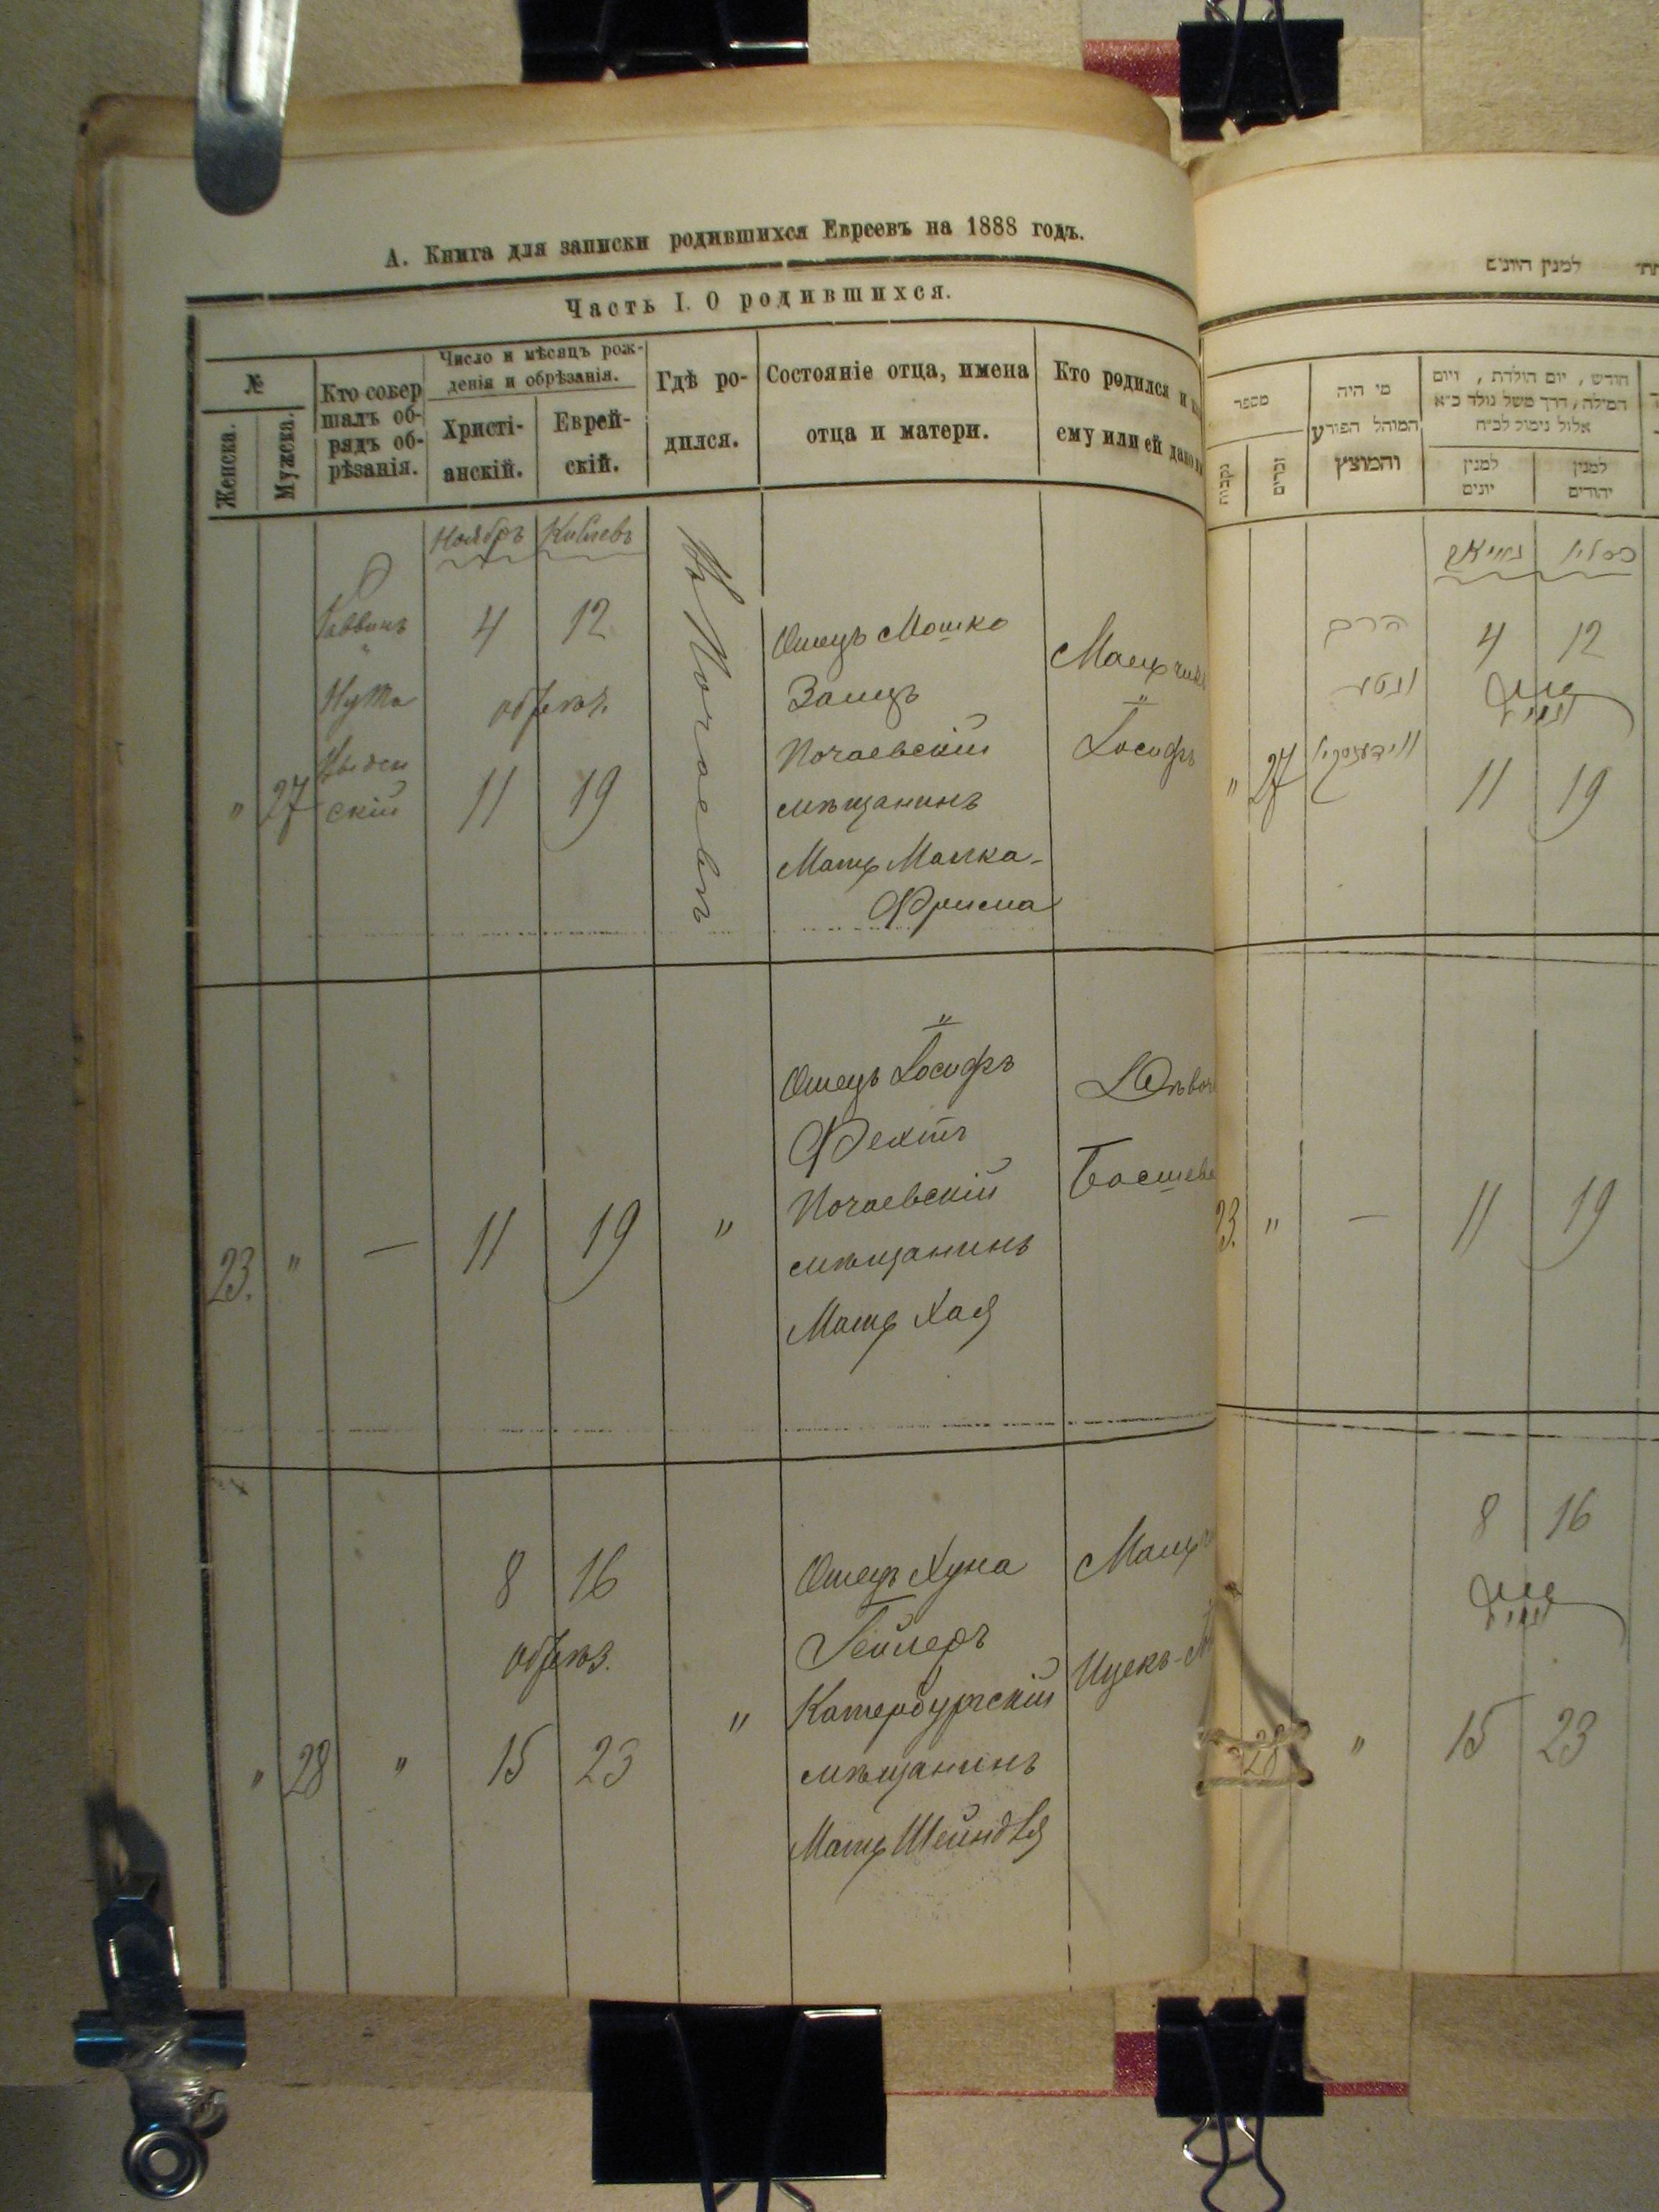 А. Книга для записки родившихся Евреевъ на 1888 годъ.
Часть I. О родившихся.
№
Женска.
Мужска.
Кто совер
шалъ об-
рядъ об-
рѣзанія.
Число и мѣсяцъ рож-
денія и обрѣзанія.
Христі-
анскій.
Еврей-
скій.
Гдѣ ро-
дился.
Состояніе отца, имена
отца и матери.
Кто родился и
ему или ей дано
Ноябрь Кислевъ
"
27
Раввинъ
Нута
скій
4 12
обрѣз.
11 19
Въ Почаевѣ
Отецъ Мошко
Заецъ
Почаевскій
мѣщанинъ
Мать Малка-
Фрима
Мальчикъ
Іосифъ
23.
"
—
11 19
"
Отецъ Іосифъ
Фехтъ
Почаевскій
мѣщанинъ
Мать Хая
Басшева
"
28
"
8 16
обрѣз.
15 23
"
Отецъ Хуна
Гейлеръ
Катербургскій
мѣщанинъ
Мать Шейндля
Ицекъ-
למנין היונים
מספר
נקבות
זכרים
מי היה
המוהל הפורע
והמוצץ
חודש, יום הולדת, ויום
המילה, דרך משל נולד כ״א
אלול נימול לכ״ח
למנין
יונים
למנין
יהודים
כסלו
הרב
נטע
"
27
4 12
נימול
11 19
23.
"
—
11 19
8 16
נימול
28
"
15 23